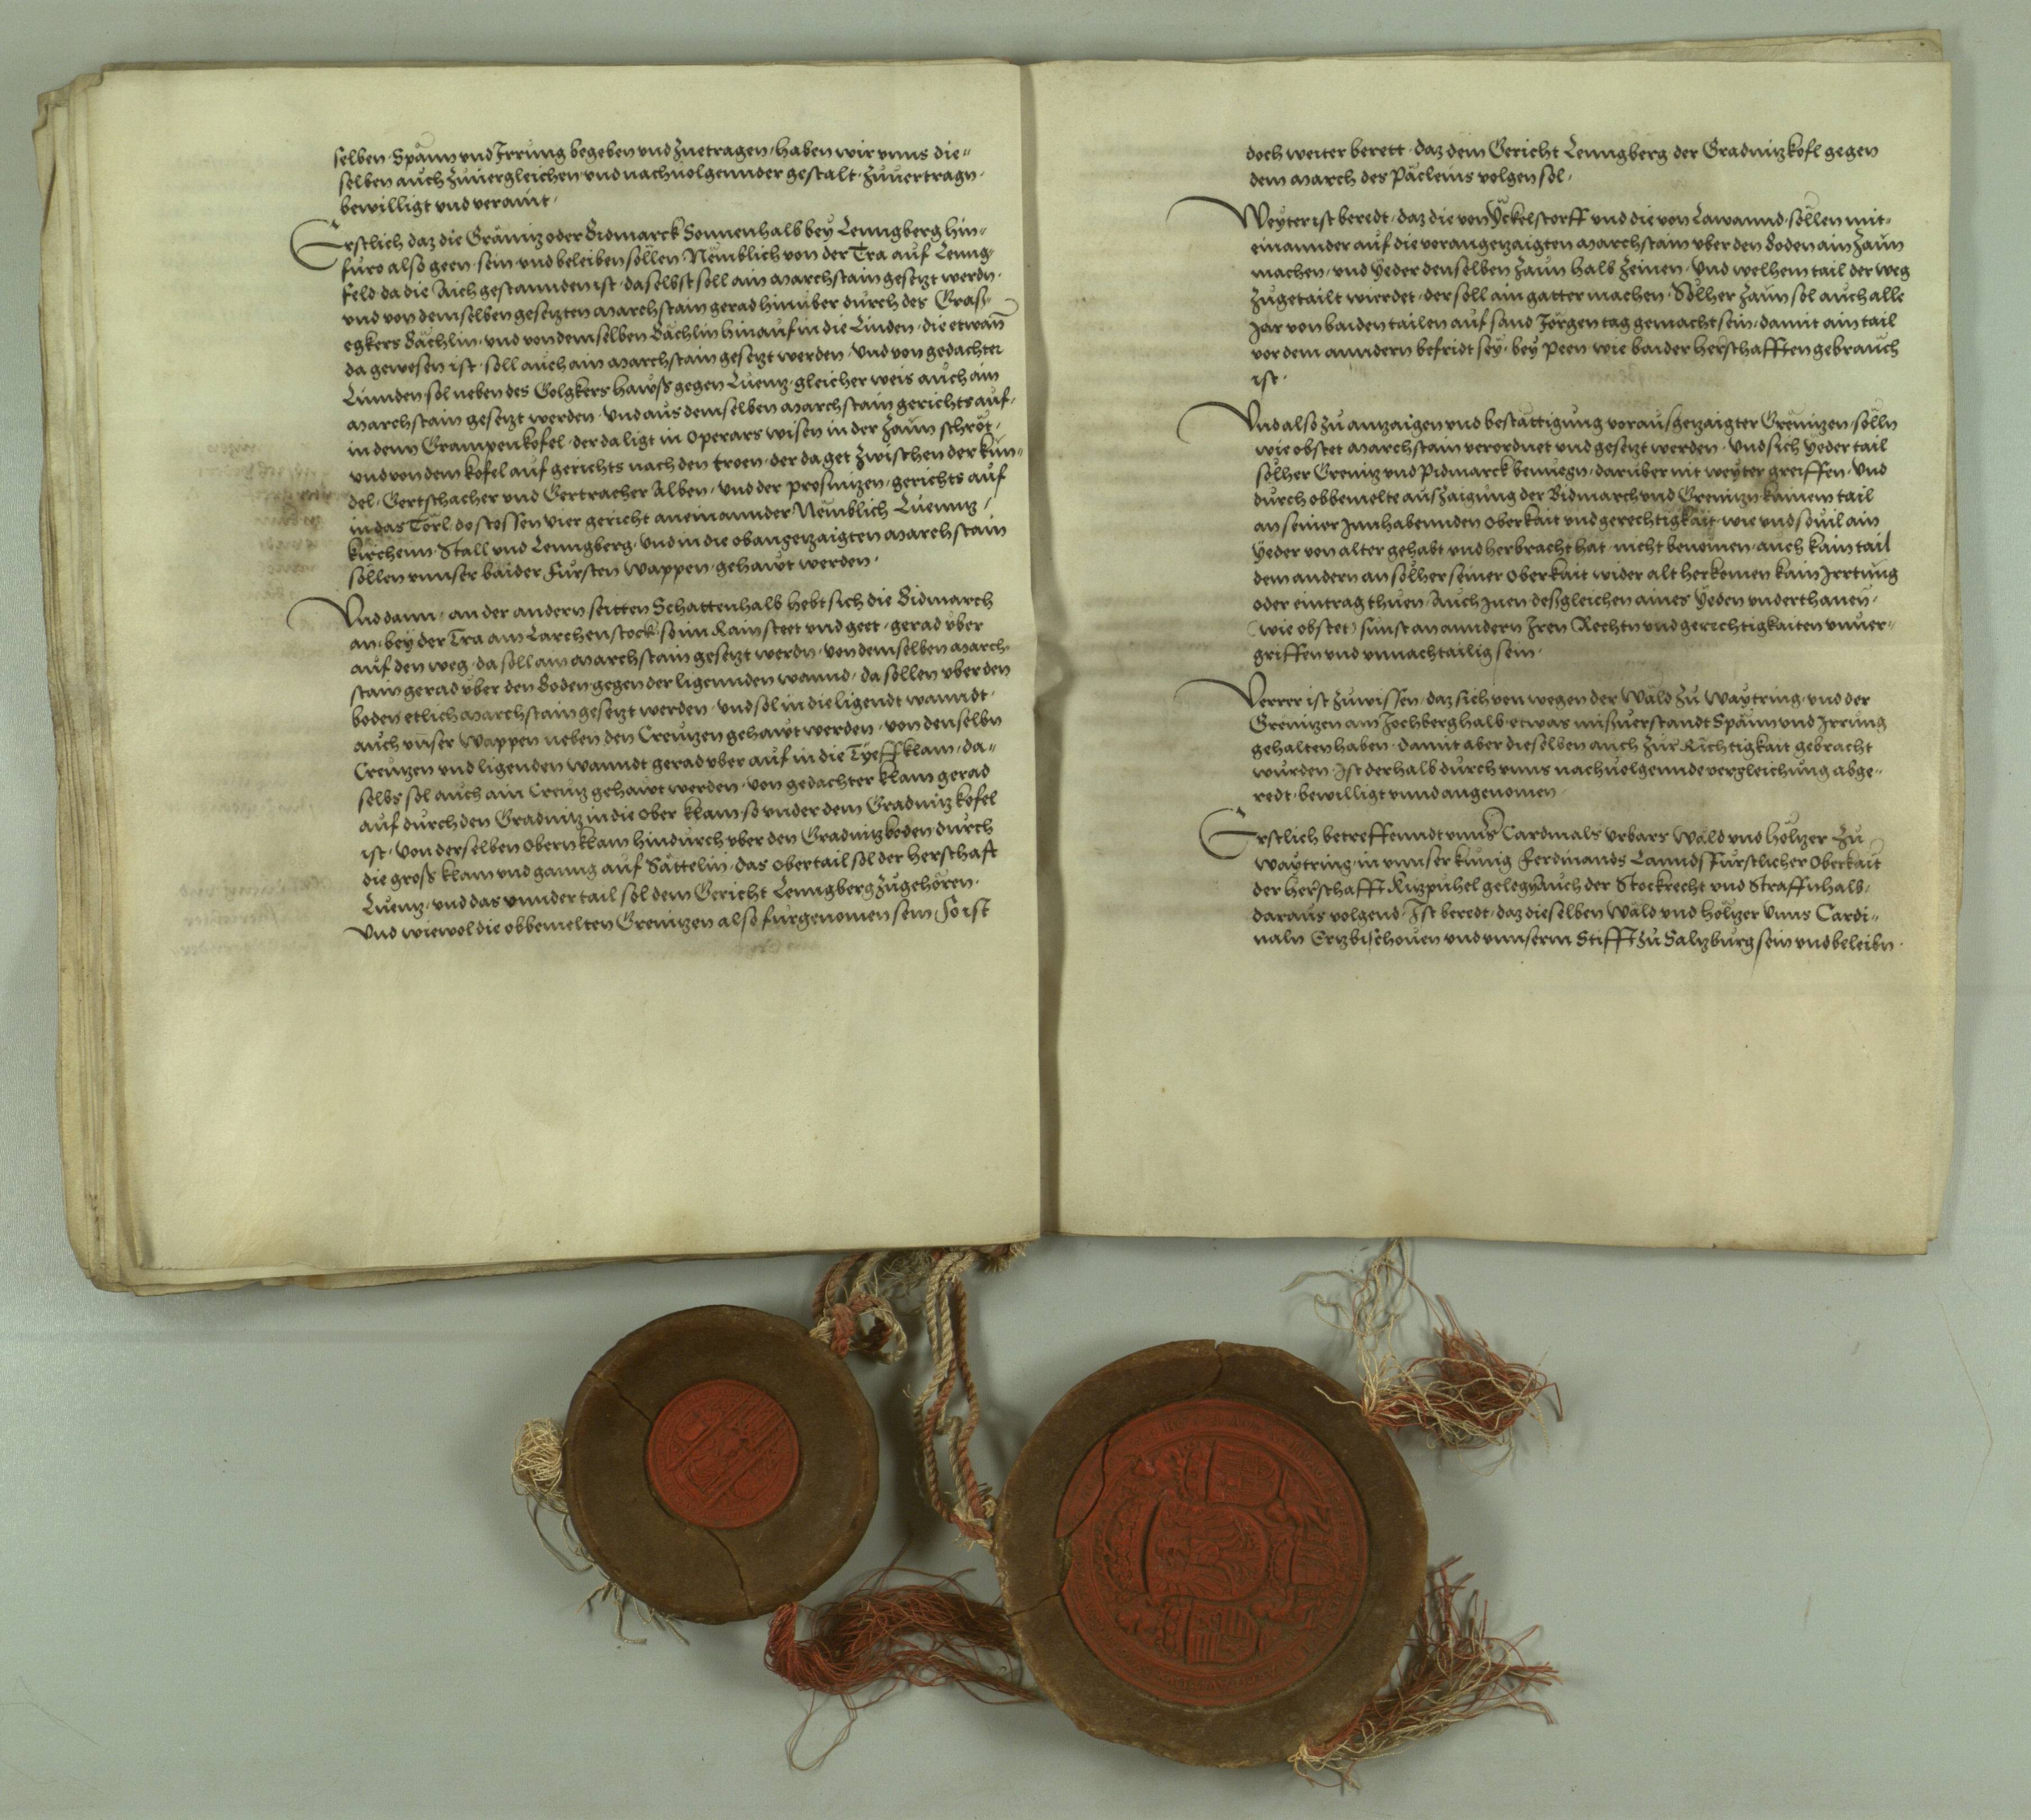 selben Spänn und Irrung begeben und zuetragen, haben wir unns die=
selben auch zuvergleichen und nachvolgennder gestalt, zuvertragn,
bewilligt und veraint.
Erstlich daz die Gränitz oder Bidmarck Sonnenhalb bey Lenngberg hin=
furo also geen, sein und beleiben söllen Nemblich von der Tra auf Lenng=
feld da die Aich gestannden ist, daselbst soll ain marchstain gesetzt werdn,
und von demselben gesetzten marchstain gerad hinuber durch des Graß=
egkers Bächlin, und von demselben Bächlin hinauf in die Linden, die etwan
da gewesen ist, soll auch ain marchstain gesetzt werden, und von gedachter
Linnden sol neben des Golgkers hawss gegen Luenz, gleicher weis auch ain
marchstain gesetzt werden, Und aus demselben marchstain gerichts auf,
in denn Grampenkofel, der da ligt in Operars wisen in der zaun schröt,
und von dem kofel auf gerichts nach den troen, der da get zwischen der kün=
del, Gertschacher und Gertracher Alben, und der prosnitzen, gerichts auf
in das Törl, do stossen vier gericht aneinannder Nemblich Luenntz,
kircheim, Stall und Lenngberg, und in die obangetzaigten marchstain
söllen unnser baider Fürsten wappen, gehawt werden.
Und dann, an der andern seitten Schattenhalb hebt sich die Bidmarch
an, bey der Tra am Larchenstock, so im Rain steet und geet, gerad uber
auf den weg, da soll ain marchstain gesetzt werdn, von demselben march=
stain gerad uber den Boden gegen der ligennden wannd, da söllen uber den
boden etlich marchstain gesetzt werden, und sol in die ligendt wanndt,
auch unser wappen neben den Creutzen gehawt werden, von denselbn
Creutzen und ligenden wanndt gerad uber auf in die Tyeff klam, da=
selbs sol auch ain Creutz gehawt werden, von gedachter klam gerad
auf durch den Gradnitz in die ober klam so under dem Gradnitz kofel
ist, von derselben obern klam hindurch uber den Gradnitzboden durch
die gross klam und ganng auf Sättelin, das obertail sol der herschaft
Luenz, und das unndertail sol dem Gericht Lenngberg zugehören.
Und wiewol die obbemelten Grenitzen also fürgenomen sein So ist
doch weiter berett, daz dem Gericht Lenngberg der Gradnitzkofl gegen
dem march des Päcleins volgen sol.
Weyter ist beredt, daz die von Yckelstorff und die von Lawannd, söllen mit=
einannder auf die vorangetzaigten marchstain uber den Boden ain zaun
machen, und yeder denselben zaun halb zeinen, Und welhem tail der weg
zugetailt wierdet, der soll ain gatter machen, Solher zaun sol auch alle
Jar von baiden tailen auf sand Jörgen tag gemacht sein, damit ain tail
vor dem anndern befridt sey, bey peen wie baider herschafften gebrauch
ist.
Und also zu anzaigen und bestättigung vorausgetzaigter Grenitzen, sölln
wie obstet marchstain verordnet und gesetzt werden, Und sich yeder tail
sölher Grenitz und Pidmarck benuegn, darüber nit weyter greiffen, und
durch obbemelte auszaigung der Bidmarch und Grenitzn kainem tail
an seiner Innhabennden oberkait und gerechtigkait, wie und sovil ain
yeder von alter gehabt und herbracht hat, nicht benomen, auch kain tail
dem andern an sölher seiner oberkait wider alt herkomen kain Irrtung
oder eintrag thuen, Auch Inen dessgleichen aines yeden underthanen,
(wie obstet) sunst an anndern Iren Rechtn und gerechtigkaiten unver=
griffen und unnachtailig sein.
Verrer ist zuwissen, daz sich von wegen der Wäld zu Waytring, und der
Grenitzen am Jochberg halb, etwas missverstandt Spänn und Irrung
gehalten haben, Damit aber dieselben auch zur Richtigkait gebracht
wurden, Ist derhalb durch unns nachvolgennde vergleichung abge=
redt, bewilligt unnd angenomen.
Erstlich betreffenndt unnsers Cardinals urbars Wäld und höltzer zu
Waytring, in unnser kunig Ferdinands Lanndsfürstlicher Oberkait
der herschafft Kitzpuhel gelegn, Auch der Stockrecht und Straffn halb,
daraus volgend, Ist beredt, daz dieselben Wäld und höltzer Unns Cardi=
naln Ertzbischoven und unnserm Stifft zu Saltzburg sein und beleibn,